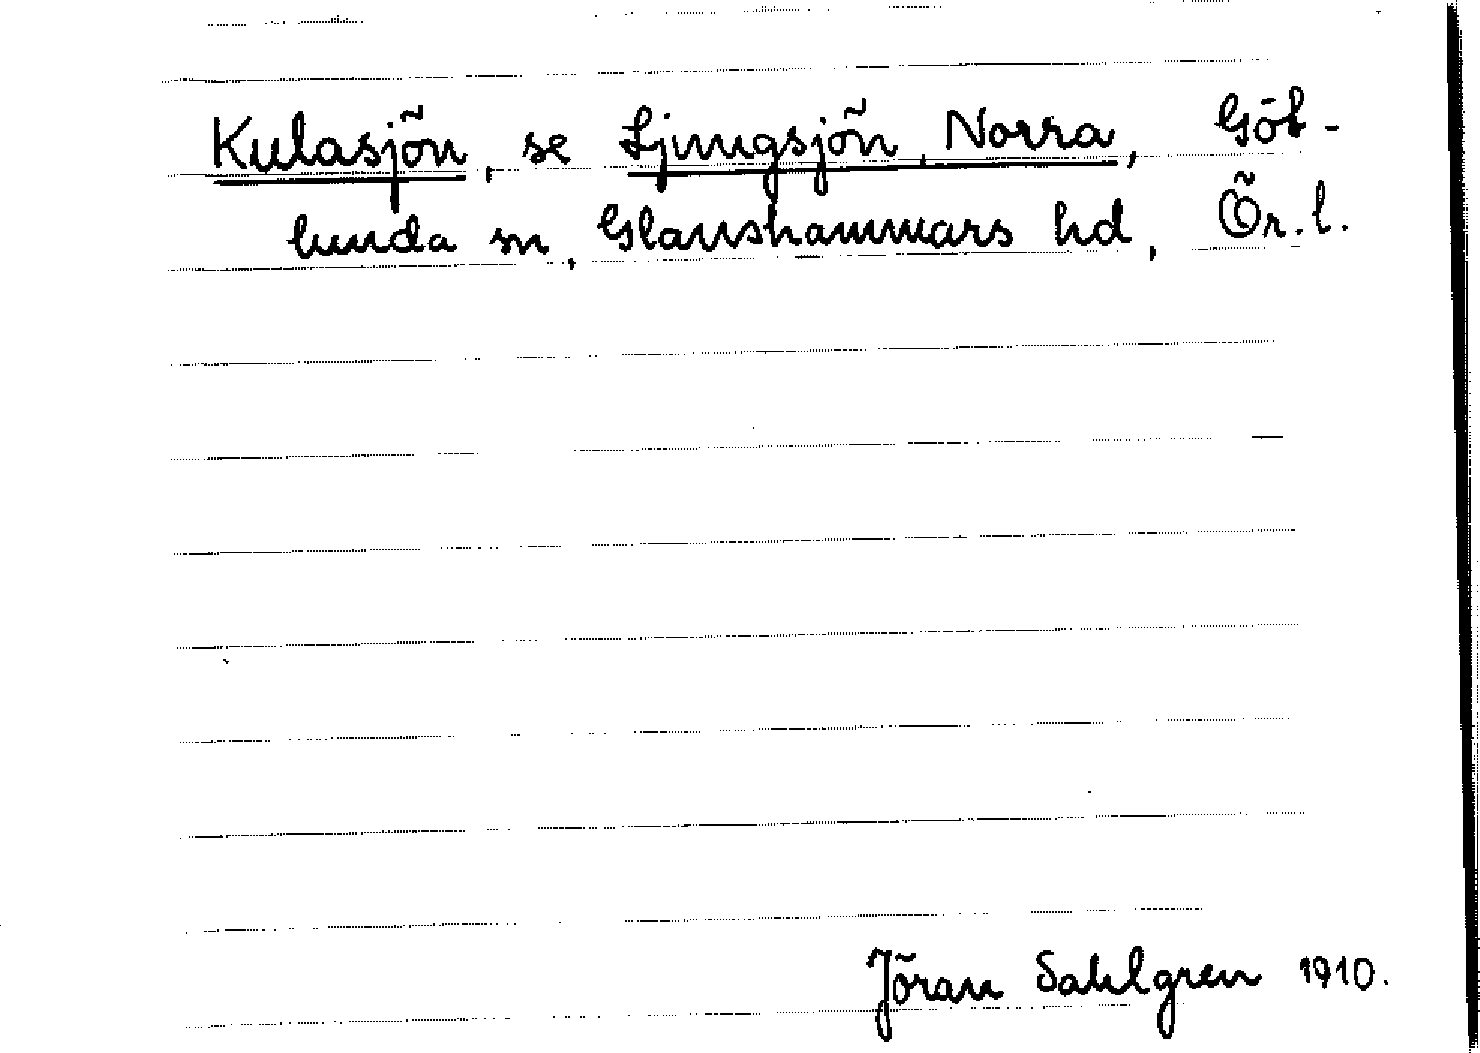 Kulasjön, se Ljungsjön, Norra, Göt-
lunda sn, Glanshammars hd, Ör. l.
Jöran Sahlgren 1910.